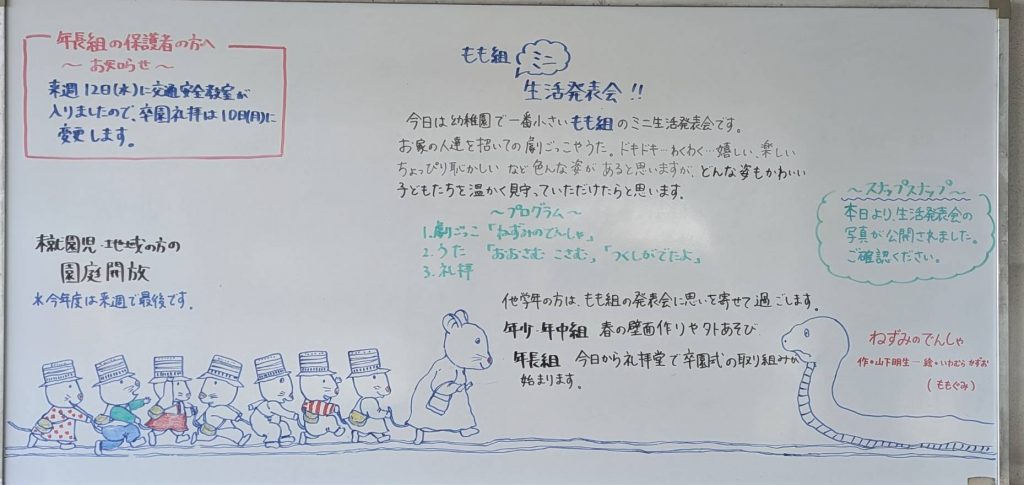 年長組の保護者の方へ
～お知らせ～
来週12日(水)に交通安全教室が
入りましたので、卒園礼拝は10日(月)に
変更します。
もも組 ミニ
生活発表会!!
今日は幼稚園で一番小さいもも組のミニ生活発表会です。
お家の人達を招いての劇ごっこやうた。ドキドキ…わくわく…嬉しい、楽しい
ちょっぴり恥かしい など色んな姿が あると思いますが、どんな姿もかわいい
子どもたちを温かく見守っていただけたらと思います。
～プログラム～
1.劇ごっこ「ねずみのでんしゃ」
2.うた 「おおさむ こさむ」、「つくしがでたよ」
3.礼拝
～スナップスナップ～
本日より、生活発表会の
写真が公開されました。
ご確認ください。
未就園児・地域の方の
園庭開放
※今年度は来週で最後です。
他学年の方は、もも組の発表会に思いを寄せて過ごします。
年少・年中組 春の壁面作りや外あそび
年長組 今日から礼拝堂で卒園式の取り組みが
始まります。
ねずみのでんしゃ
作・山下明生－絵・いわむらかずお
(ももぐみ)